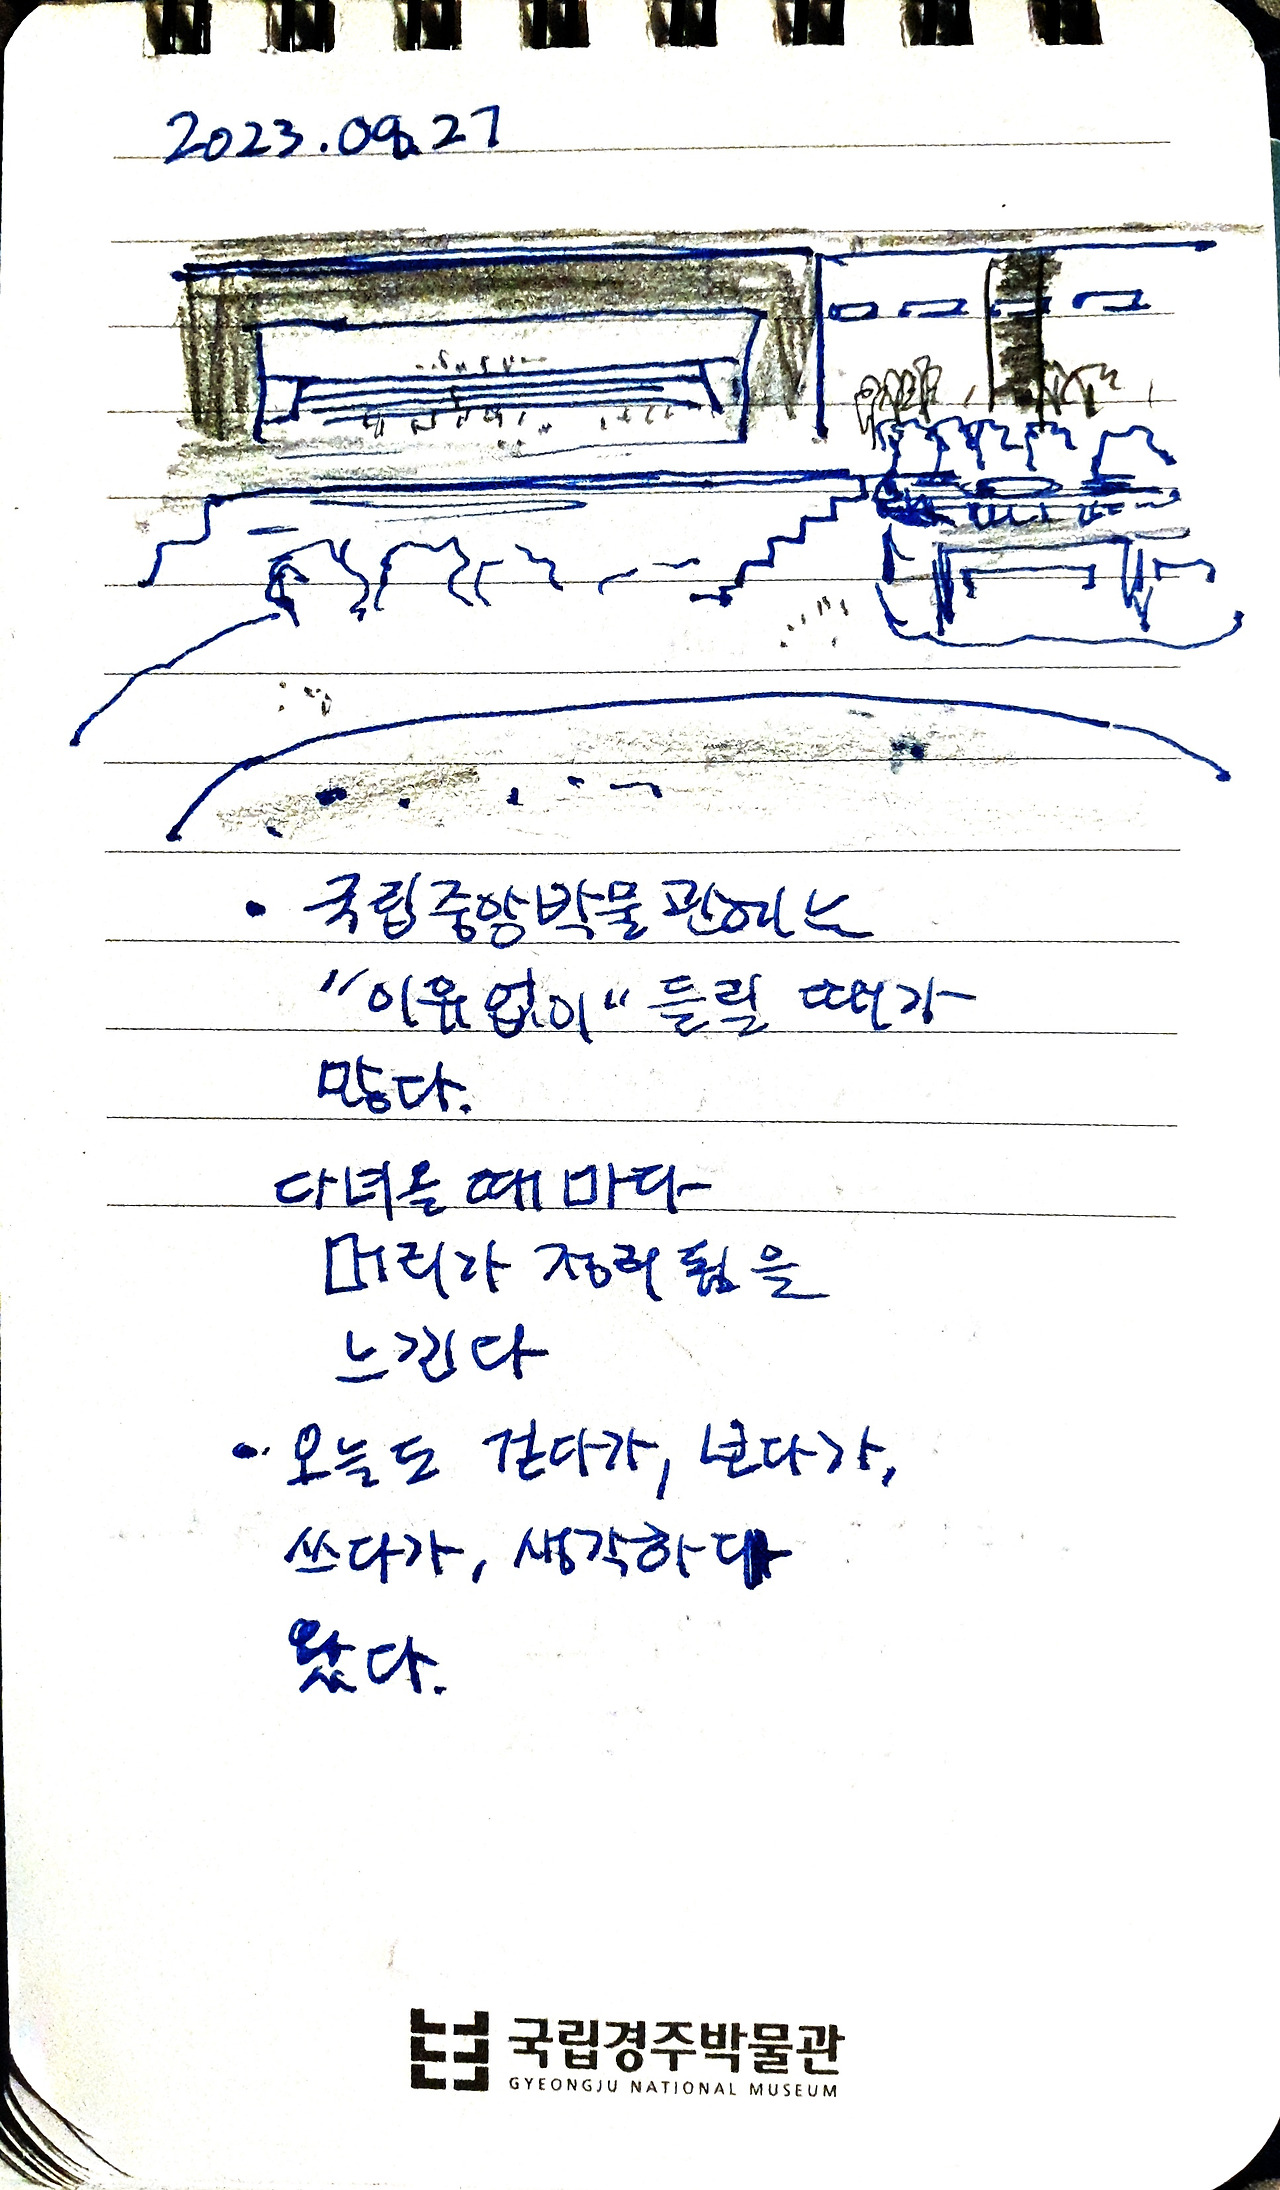 2023.09.27
• 국립중앙박물관에는
"이유없이" 들릴 때가
많다.
다녀올 때마다
머리가 정리됨을
느낀다
• 오늘도 걷다가, 보다가,
쓰다가, 생각하다
왔다.
국립경주박물관
GYEONGJU NATIONAL MUSEUM